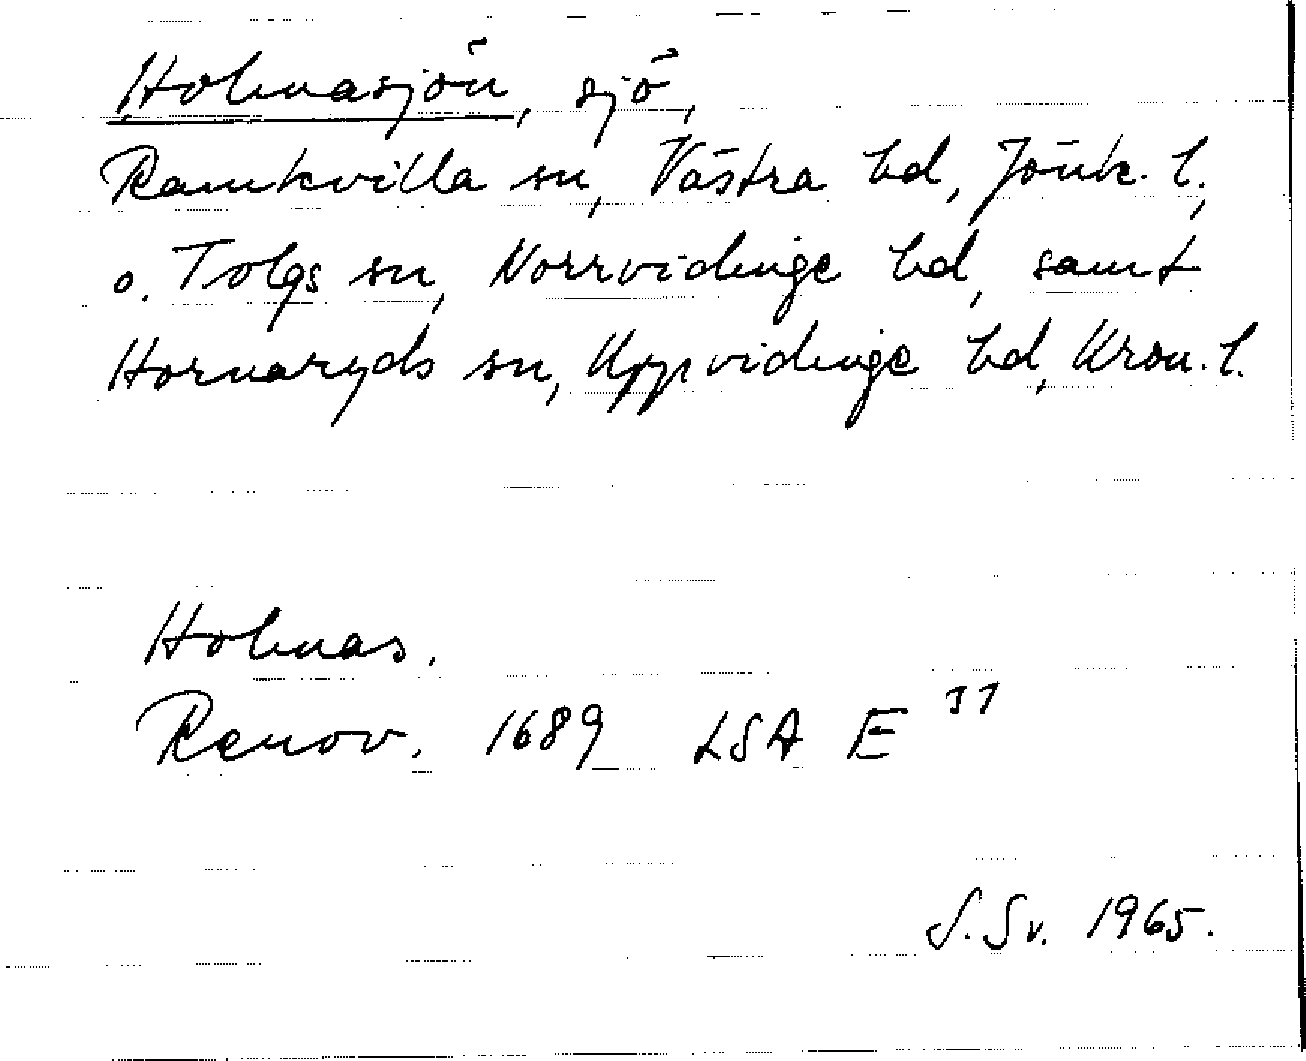 Holmasjön, sjö,
Ramkvilla sn, Västra hd, Jönk. l.,
o. Tolgs sn, Norrvidinge hd, samt
Hornaryds sn, Uppvidinge hd, Kron. l.
Holmas.
Renov. 1689 LSA E
S. Sv. 1965.